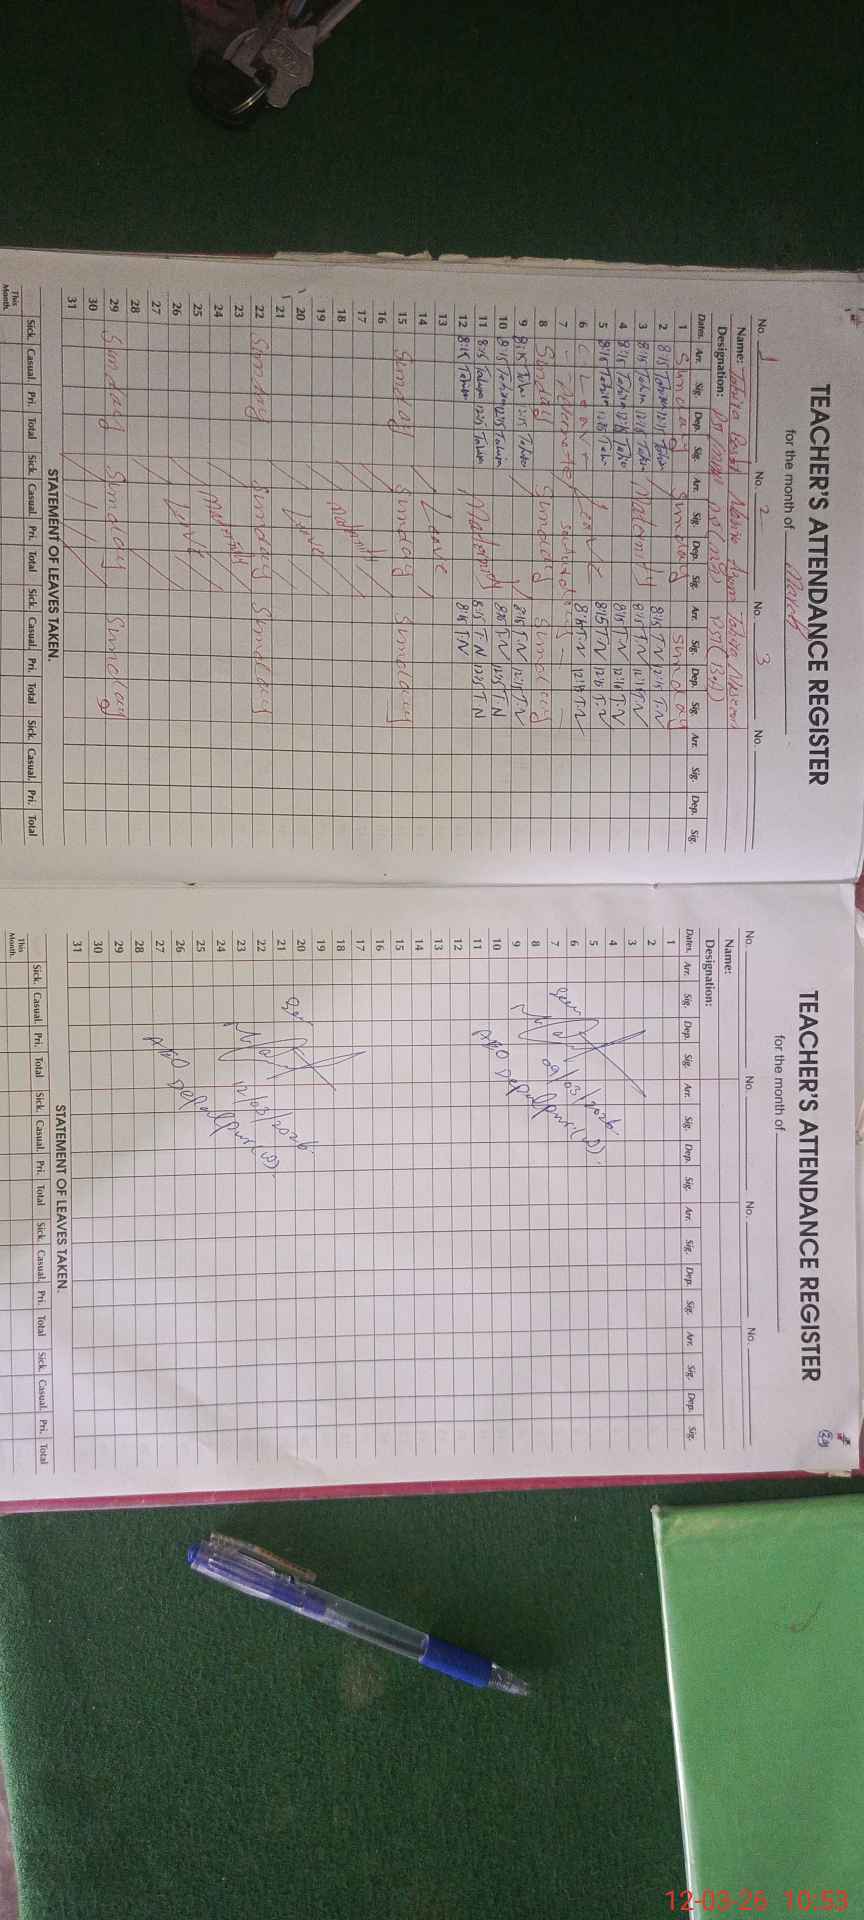 TEACHER'S ATTENDANCE REGISTER
for the month of March
No. 1 No. 2 No. 3 No.
Name: Tahira Tahira
Designation:
Dates. Arr. Sig. Dep. Sig. Arr. Sig. Dep. Sig. Arr. Sig. Dep. Sig. Arr. Sig. Dep. Sig.
1 Sunday Sunday Sunday
2 8:15 Tahira 12:15 Tahira 8:15 T.N 12:15 T.N
3 8:15 Tahira 12:15 Maternity 8:15 T.N 12:15 T.N
4 8:15 Tahira 12:15 8:15 T.N 12:15 T.N
5 8:15 Tahira 12:15 8:15 T.N 12:15 T.N
6 C Leave Leave 8:15 T.N 12:15 T.N
7
8 Sunday Sunday Sunday
9 8:15 12:15 8:15 T.N 12:15 T.N
10 8:15 Tahira 12:15 Tahira 8:15 T.N 12:15 T.N
11 8:15 Tahira 12:15 Tahira Maternity 8:15 T.N 12:15 T.N
12 8:15 Tahira 8:15 T.N
13
14 Leave
15 Sunday Sunday Sunday
16
17
18 Maternity
19
20 Leave
21
22 Sunday Sunday Sunday
23
24 Maternity
25
26 Leave
27
28
29 Sunday Sunday Sunday
30
31
STATEMENT OF LEAVES TAKEN.
Sick. Casual. Pri. Total Sick. Casual. Pri. Total Sick. Casual. Pri. Total Sick. Casual. Pri. Total
This
Month.
TEACHER'S ATTENDANCE REGISTER
for the month of
No. No. No. No.
Name:
Designation:
Dates. Arr. Sig. Dep. Sig. Arr. Sig. Dep. Sig. Arr. Sig. Dep. Sig. Arr. Sig. Dep. Sig.
1
2
3
4
5
6
7
8
9
10
11
12
13
14
15
16
17
18
19
20
21
22
23
24
25
26
27
28
29
30
31
09/03/2026
AEO Depalpur (W)
12/03/2026
AEO Depalpur (W)
STATEMENT OF LEAVES TAKEN.
Sick. Casual. Pri. Total Sick. Casual. Pri. Total Sick. Casual. Pri. Total Sick. Casual. Pri. Total
This
Month.
12-03-26 10:53